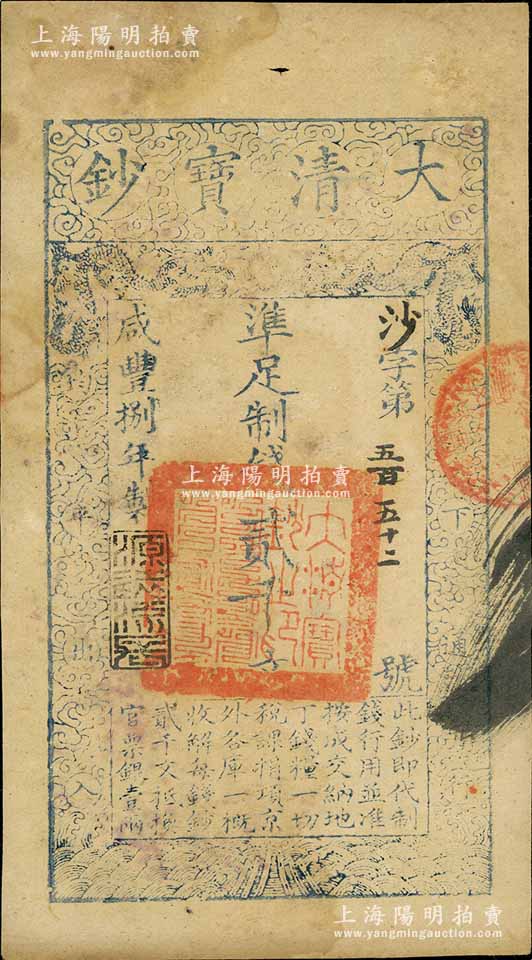 上海陽明拍賣
www.yangmingauction.com
大清寶鈔
沙字第五百五十二號
準足制錢貳千文
咸豐捌年製
下通行
平出入
此鈔即代制
錢行用並准
按成交納地
丁錢糧一切
稅課捐項京
外各庫一概
收解每錢鈔
貳千文抵換
官票銀壹兩
大清寶
上海陽明拍賣
www.yangmingauction.com
上海陽明拍賣
www.yangmingauction.com